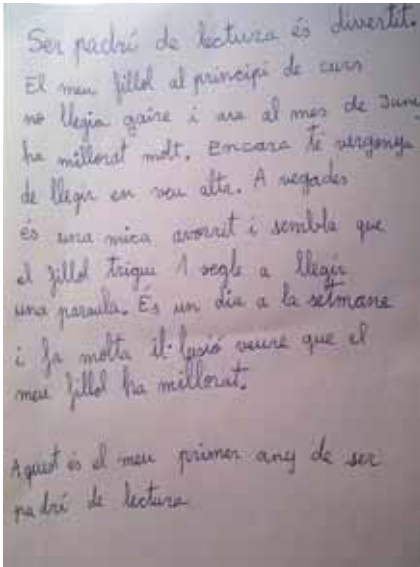 Ser padrí de lectura és divertit.
El meu fillol al principi de curs
no llegia gaire i ara al mes de Juny
ha millorat molt. Encara té vergonya
de llegir en veu alta. A vegades
és una mica avorrit i sembla que
el fillol trigui 1 segle a llegir
una paraula. És un dia a la setmana
i fa molta il·lusió veure que el
meu fillol ha millorat.
Aquest és el meu primer any de ser
padrí de lectura